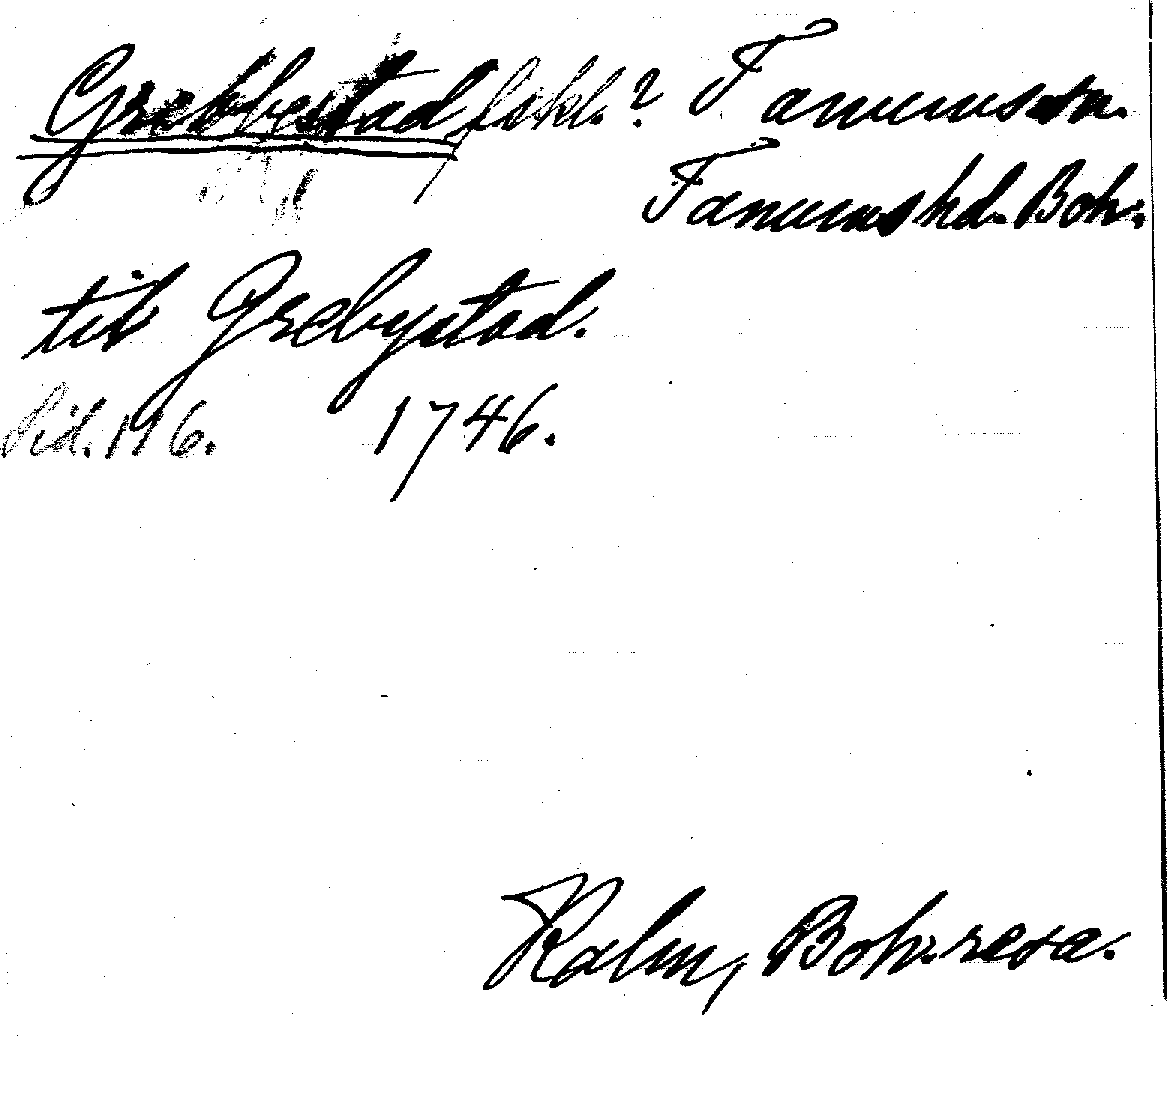 Grebbestad, fskl.? Tanums sn.
Tanums hd. Boh.
till Grebystad.
Sid. 116. 1746.
Kalm, Boh. resa.